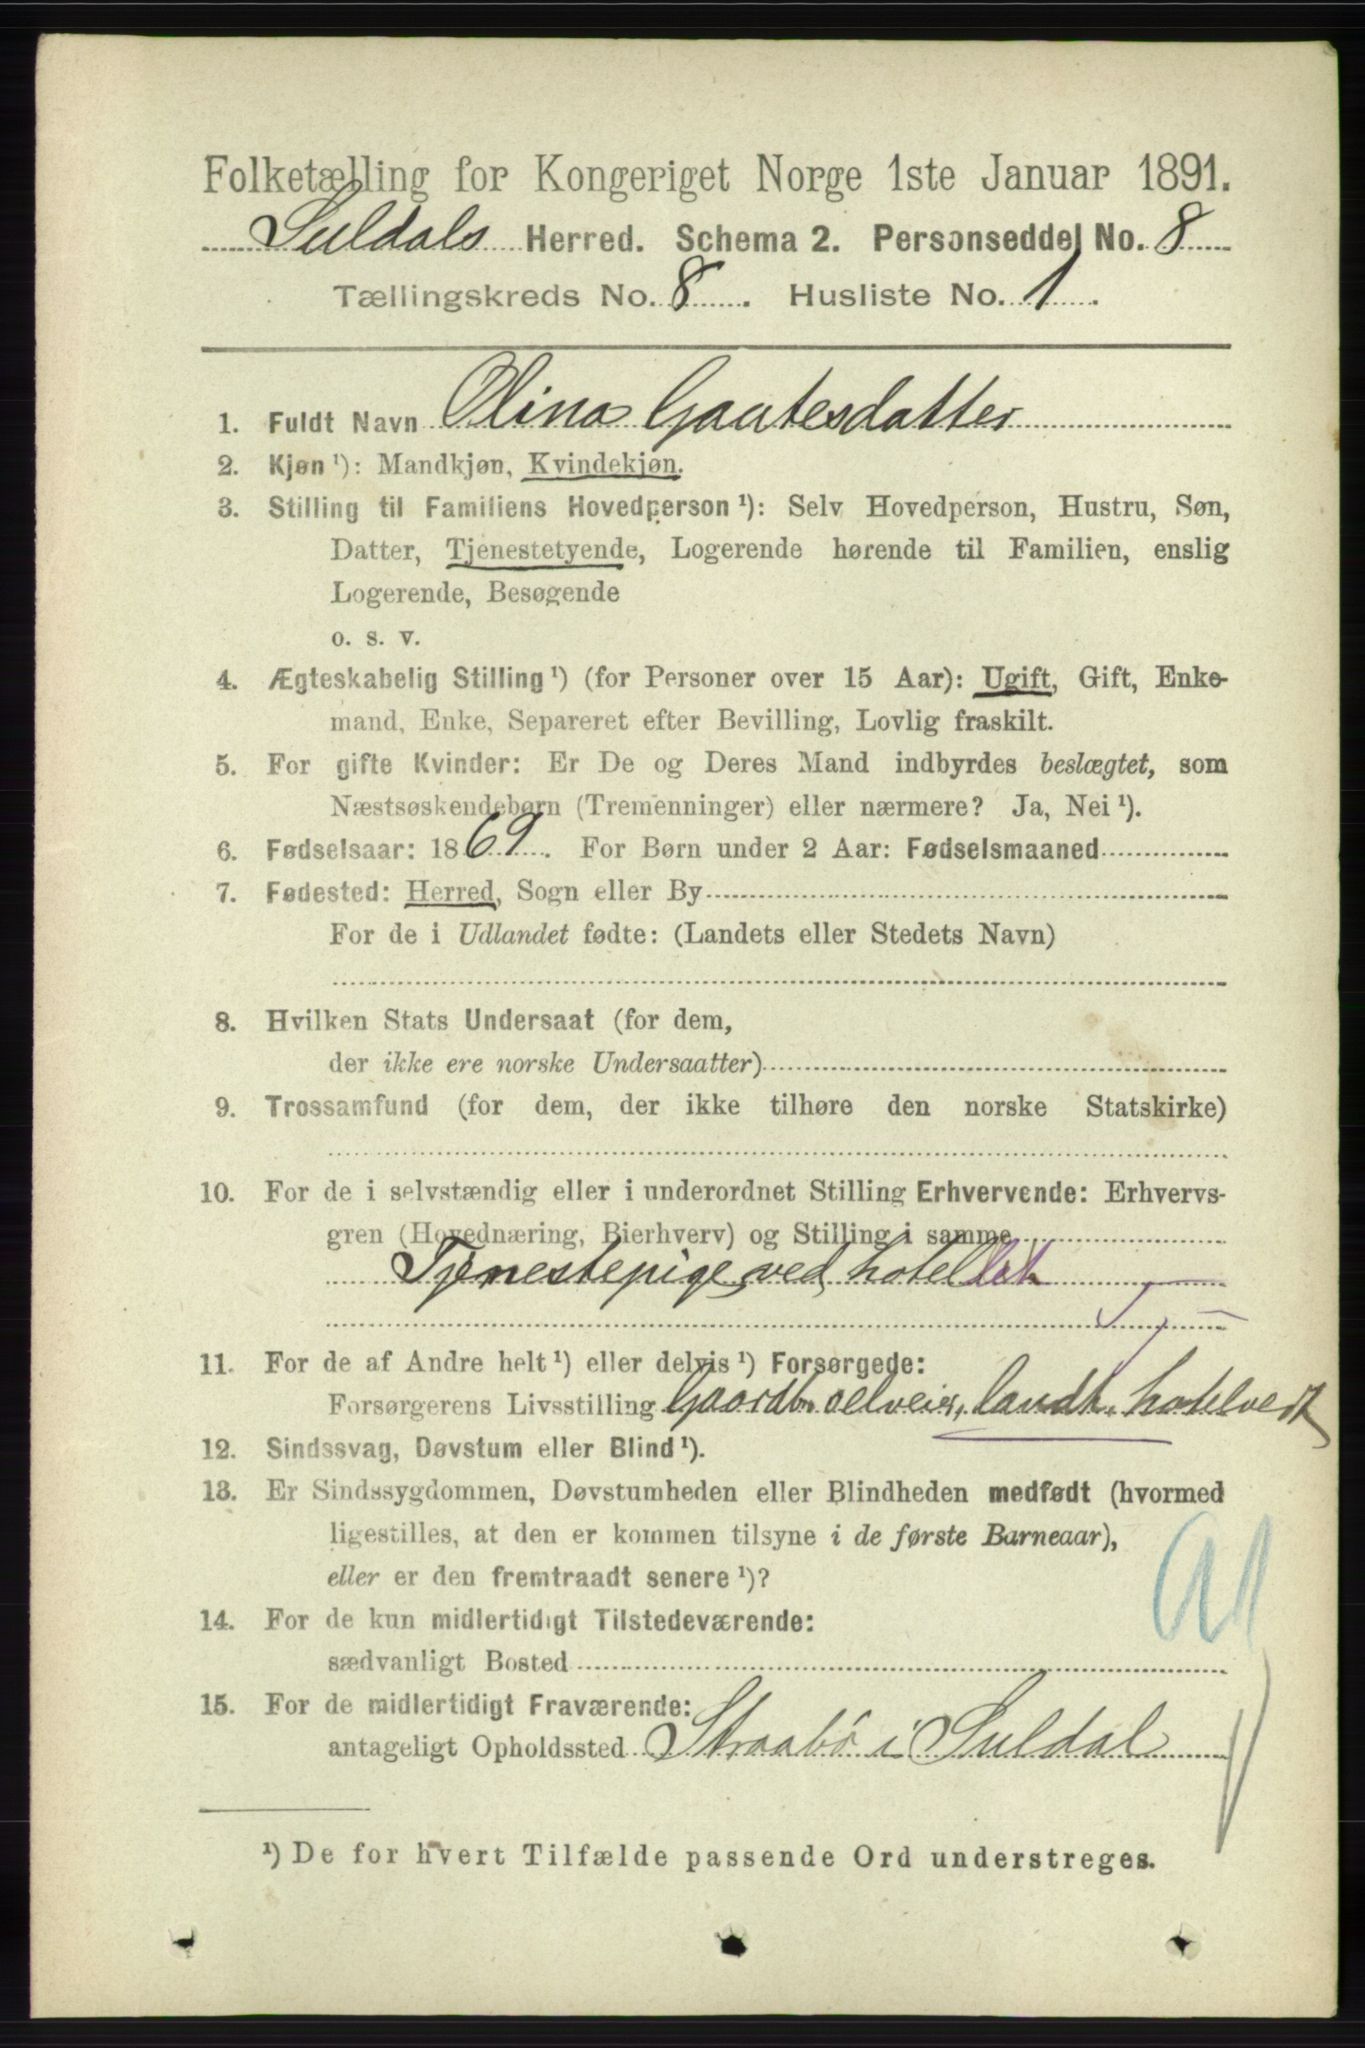 Folketælling for Kongeriget Norge 1ste Januar 1891.
Suldals Herred. Schema 2. Personseddel No. 8
Tællingskreds No. 8. Husliste No. 1.
1. Fuldt Navn Olina Gautesdatter
2. Kjøn ¹): Mandkjøn, Kvindekjøn.
3. Stilling til Familiens Hovedperson ¹): Selv Hovedperson, Hustru, Søn,
Datter, Tjenestetyende, Logerende hørende til Familien, enslig
Logerende, Besøgende
o. s. v.
4. Ægteskabelig Stilling ¹) (for Personer over 15 Aar): Ugift, Gift, Enke-
mand, Enke, Separeret efter Bevilling, Lovlig fraskilt.
5. For gifte Kvinder: Er De og Deres Mand indbyrdes beslægtet, som
Næstsøskendebørn (Tremenninger) eller nærmere? Ja, Nei ¹).
6. Fødselsaar: 1869. For Børn under 2 Aar: Fødselsmaaned
7. Fødested: Herred, Sogn eller By
For de i Udlandet fødte: (Landets eller Stedets Navn)
8. Hvilken Stats Undersaat (for dem,
der ikke ere norske Undersaatter)
9. Trossamfund (for dem, der ikke tilhøre den norske Statskirke)
10. For de i selvstændig eller i underordnet Stilling Erhvervende: Erhvervs-
gren (Hovednæring, Bierhverv) og Stilling i samme
Tjenestepige ved hotellet
11. For de af Andre helt ¹) eller delvis ¹) Forsørgede:
Forsørgerens Livsstilling Gaardbr. selveier, landh. hotelvert
12. Sindssvag, Døvstum eller Blind ¹).
13. Er Sindssygdommen, Døvstumheden eller Blindheden medfødt (hvormed
ligestilles, at den er kommen tilsyne i de første Barneaar),
eller er den fremtraadt senere ¹)?
14. For de kun midlertidigt Tilstedeværende:
sædvanligt Bosted
15. For de midlertidigt Fraværende:
antageligt Opholdssted Straabø i Suldal
¹) De for hvert Tilfælde passende Ord understreges.